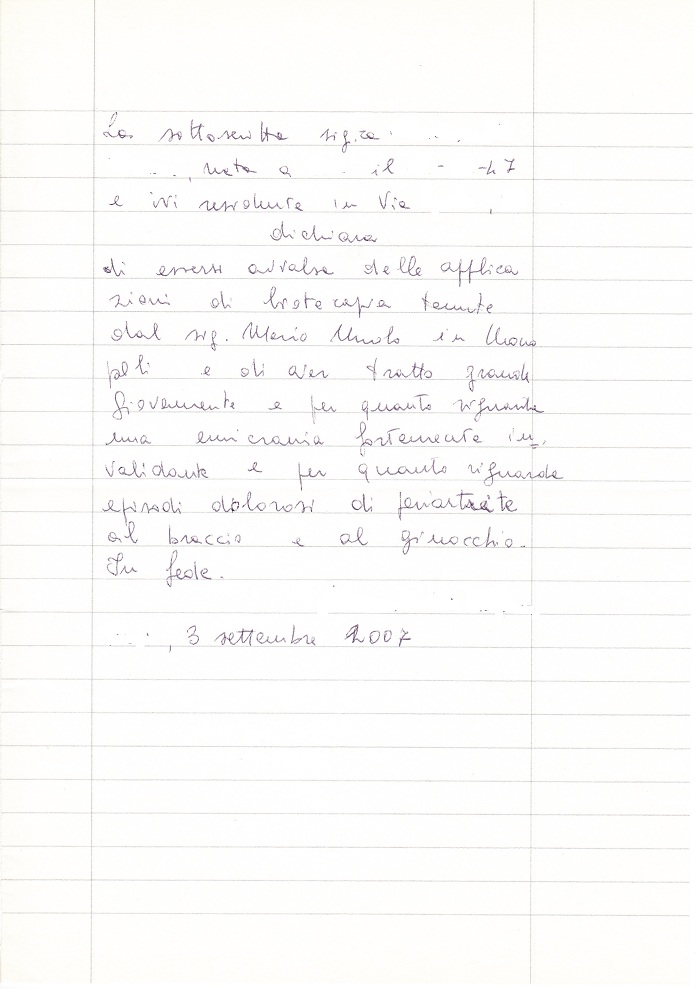 La sottoscritta sig.ra
, nata a il - -47
e ivi residente in Via ,
dichiara
di essersi avvalsa delle applica
zioni di bioterapia tenute
dal sig. Mario in
poli e di aver tratto grande
giovamento e per quanto riguarda
una emicrania fortemente in=
validante e per quanto riguarda
episodi dolorosi di periartrite
al braccio e al ginocchio.
In fede.
, 3 settembre 2007